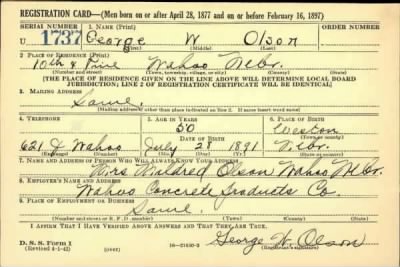 REGISTRATION CARD—(Men born on or after April 28, 1877 and on or before February 16, 1897)
SERIAL NUMBER 1. NAME (Print)
U 1737 George W Olson
(First) (Middle) (Last)
2. PLACE OF RESIDENCE (Print)
10th & Pine Wahoo Nebr.
(Number and street) (Town, township, village, or city) (County) (State)
[THE PLACE OF RESIDENCE GIVEN ON THE LINE ABOVE WILL DETERMINE LOCAL BOARD
JURISDICTION; LINE 2 OF REGISTRATION CERTIFICATE WILL BE IDENTICAL]
3. MAILING ADDRESS
Same
[Mailing address if other than place indicated on line 2. If same insert word same]
4. TELEPHONE 5. AGE IN YEARS 6. PLACE OF BIRTH
50 Weston
DATE OF BIRTH (Town or county)
621 J Wahoo July 28 1891 Nebr.
(Exchange) (Number) (Mo.) (Day) (Yr.) (State or country)
7. NAME AND ADDRESS OF PERSON WHO WILL ALWAYS KNOW YOUR ADDRESS
Mrs Mildred Olson Wahoo Nebr.
8. EMPLOYER'S NAME AND ADDRESS
Wahoo Concrete Products Co.
9. PLACE OF EMPLOYMENT OR BUSINESS
Same
(Number and street or R. F. D. number) (Town) (County) (State)
I AFFIRM THAT I HAVE VERIFIED ABOVE ANSWERS AND THAT THEY ARE TRUE.
D. S. S. Form 1
(Revised 4-1-42) (over) 16—21630-2 George W. Olson
(Registrant's signature)